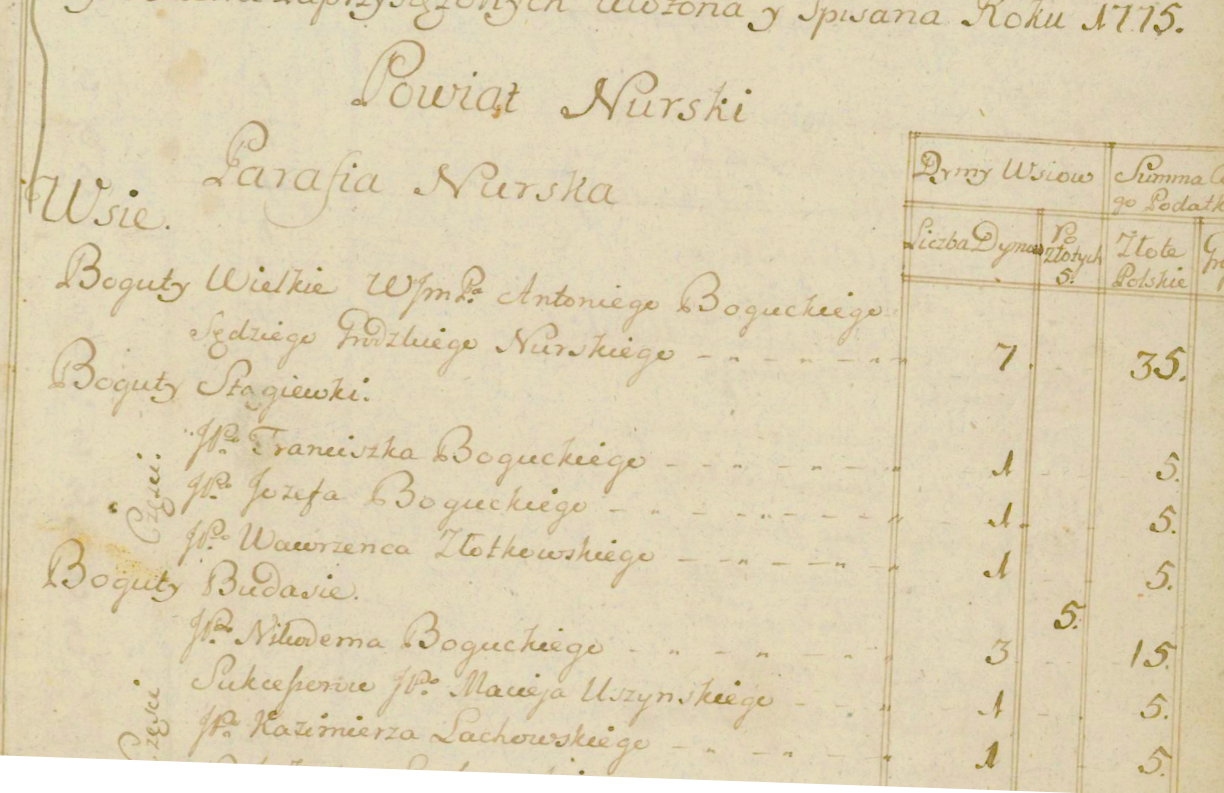 zaprzysężonych ułożona y spisana Roku 1775.
Powiat Nurski
Parafia Nurska
Wsie.
Dymy Wsiow
Summa
go Podatk
Liczba Dymow
Po Złotych 5.
Złote Polskie
Boguty Wielkie WJmP. Antoniego Boguckiego
Sędziego Grodzkiego Nurskiego 7. 35.
Boguty Stągiewki.
Części.
JP. Franciszka Boguckiego 1 5.
JP. Jozefa Boguckiego 1. 5.
JP. Wawrzenca Złotkowskiego 1 5.
Boguty Budasie.
5.
Części
JP. Nikodema Boguckiego 3 15.
Sukcessorow JP. Macieja Uszynskiego 1 5.
JP. Kazimierza Lachowskiego 1 5.